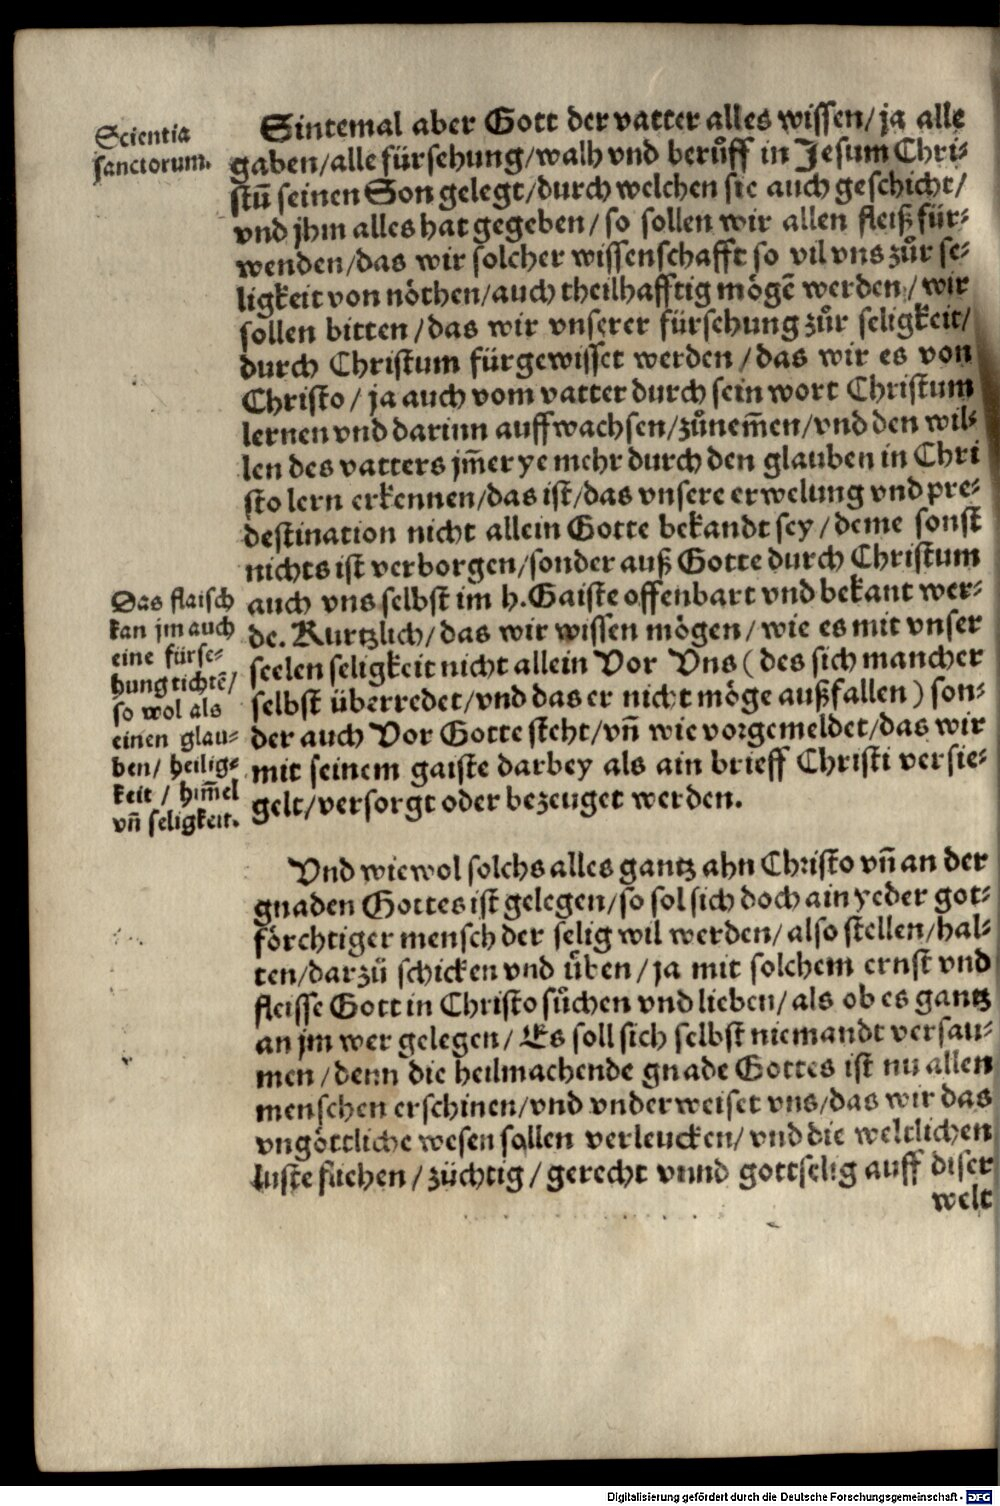 Scientia
sanctorum.
Sintemal aber Gott der vatter alles wissen/ ja alle
gaben/alle fürsehung/walh vnd berůff in Jesum Chri-
stū seinen Son gelegt/durch welchen sie auch geschicht/
vnd jhm alles hat gegeben/ so sollen wir allen fleiß für-
wenden/das wir solcher wissenschafft so vil vns zůr se-
ligkeit von nöthen/auch theilhafftig mögē werden/ wir
sollen bitten/das wir vnserer fürsehung zůr seligkeit/
durch Christum fürgewisset werden/das wir es von
Christo/ ja auch vom vatter durch sein wort Christum
lernen vnd darinn auffwachsen/zůnem̄en/vnd den wil-
len des vatters jm̄er ye mehr durch den glauben in Chri
sto lern erkennen/das ist/das vnsere erwelung vnd pre-
destination nicht allein Gotte bekandt sey/deme sonst
nichts ist verborgen/sonder auß Gotte durch Christum
auch vns selbst im h. Gaiste offenbart vnd bekant wer-
de. Kurtzlich/das wir wissen mögen/wie es mit vnser
seelen seligkeit nicht allein Vor Vns (des sich mancher
selbst überredet/vnd das er nicht möge außfallen) son-
der auch Vor Gotte steht/vn̄ wie vorgemeldet/das wir
mit seinem gaiste darbey als ain brieff Christi versie-
gelt/versorgt oder bezeuget werden.
Das flaisch
kan jm auch
eine fürse-
hung tichtē/
so wol als
einen glau-
ben/ heilig-
keit / him̄el
vn̄ seligkeit.
Vnd wiewol solchs alles gantz ahn Christo vn̄ an der
gnaden Gottes ist gelegen/so sol sich doch ain yeder got-
förchtiger mensch der selig wil werden/also stellen/hal-
ten/darzů schicken vnd ůben/ja mit solchem ernst vnd
fleisse Gott in Christo sůchen vnd lieben/als ob es gantz
an jm wer gelegen/ Es soll sich selbst niemandt versau-
men/denn die heilmachende gnade Gottes ist nu allen
menschen erschinen/vnd vnderweiset vns/das wir das
vngöttliche wesen sollen verleucken/vnd die weltlichen
luste fliehen/züchtig/gerecht vnnd gottselig auff diser
welt
Digitalisierung gefördert durch die Deutsche Forschungsgemeinschaft - DFG